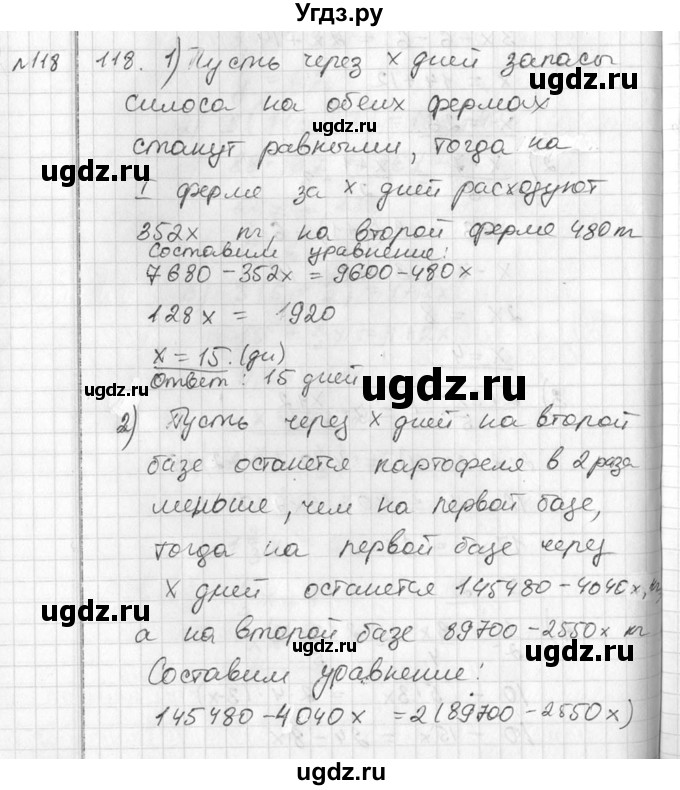 Угдз.ру
№118 118. 1) Пусть через x дней запасы
силоса на обеих фермах
станут равными, тогда на
I ферме за x дней расходуют
352x кг, на второй ферме 480т
Составим уравнение:
7680-352x = 9600-480x
128x = 1920
x = 15. (дн)
Ответ: 15 дней
2) Пусть через x дней на второй
базе останется картофеля в 2 раза
меньше, чем на первой базе,
тогда на первой базе через
x дней останется 145480-4040x, кг,
а на второй базе 89700-2550x кг
Составим уравнение:
145480-4040x = 2(89700-2550x)
ugdz.ru
ugdz.ru
ugdz.ru
ugdz.ru
ugdz.ru
ugdz.ru
ugdz.ru
ugdz.ru
ugdz.ru
ugdz.ru
ugdz.ru
ugdz.ru